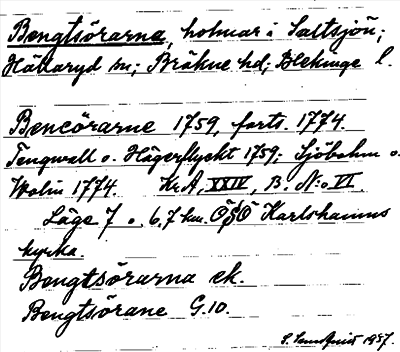 Bengtsörarne, holmar i Saltsjön;
Hällaryd sn; Bräkne hd; Blekinge l.
Bencörarne 1759, forts. 1774.
Tengwell o. Hägerflyckt 1759; Sjöbohm o.
Wolin 1774. Kr. A, XXIV, B. N:o VI.
Läge 7 o. 6,7 km. OSO Karlshamns
kyrka.
Bengtsörarna ek.
Bengtsörane G.10.
1957.